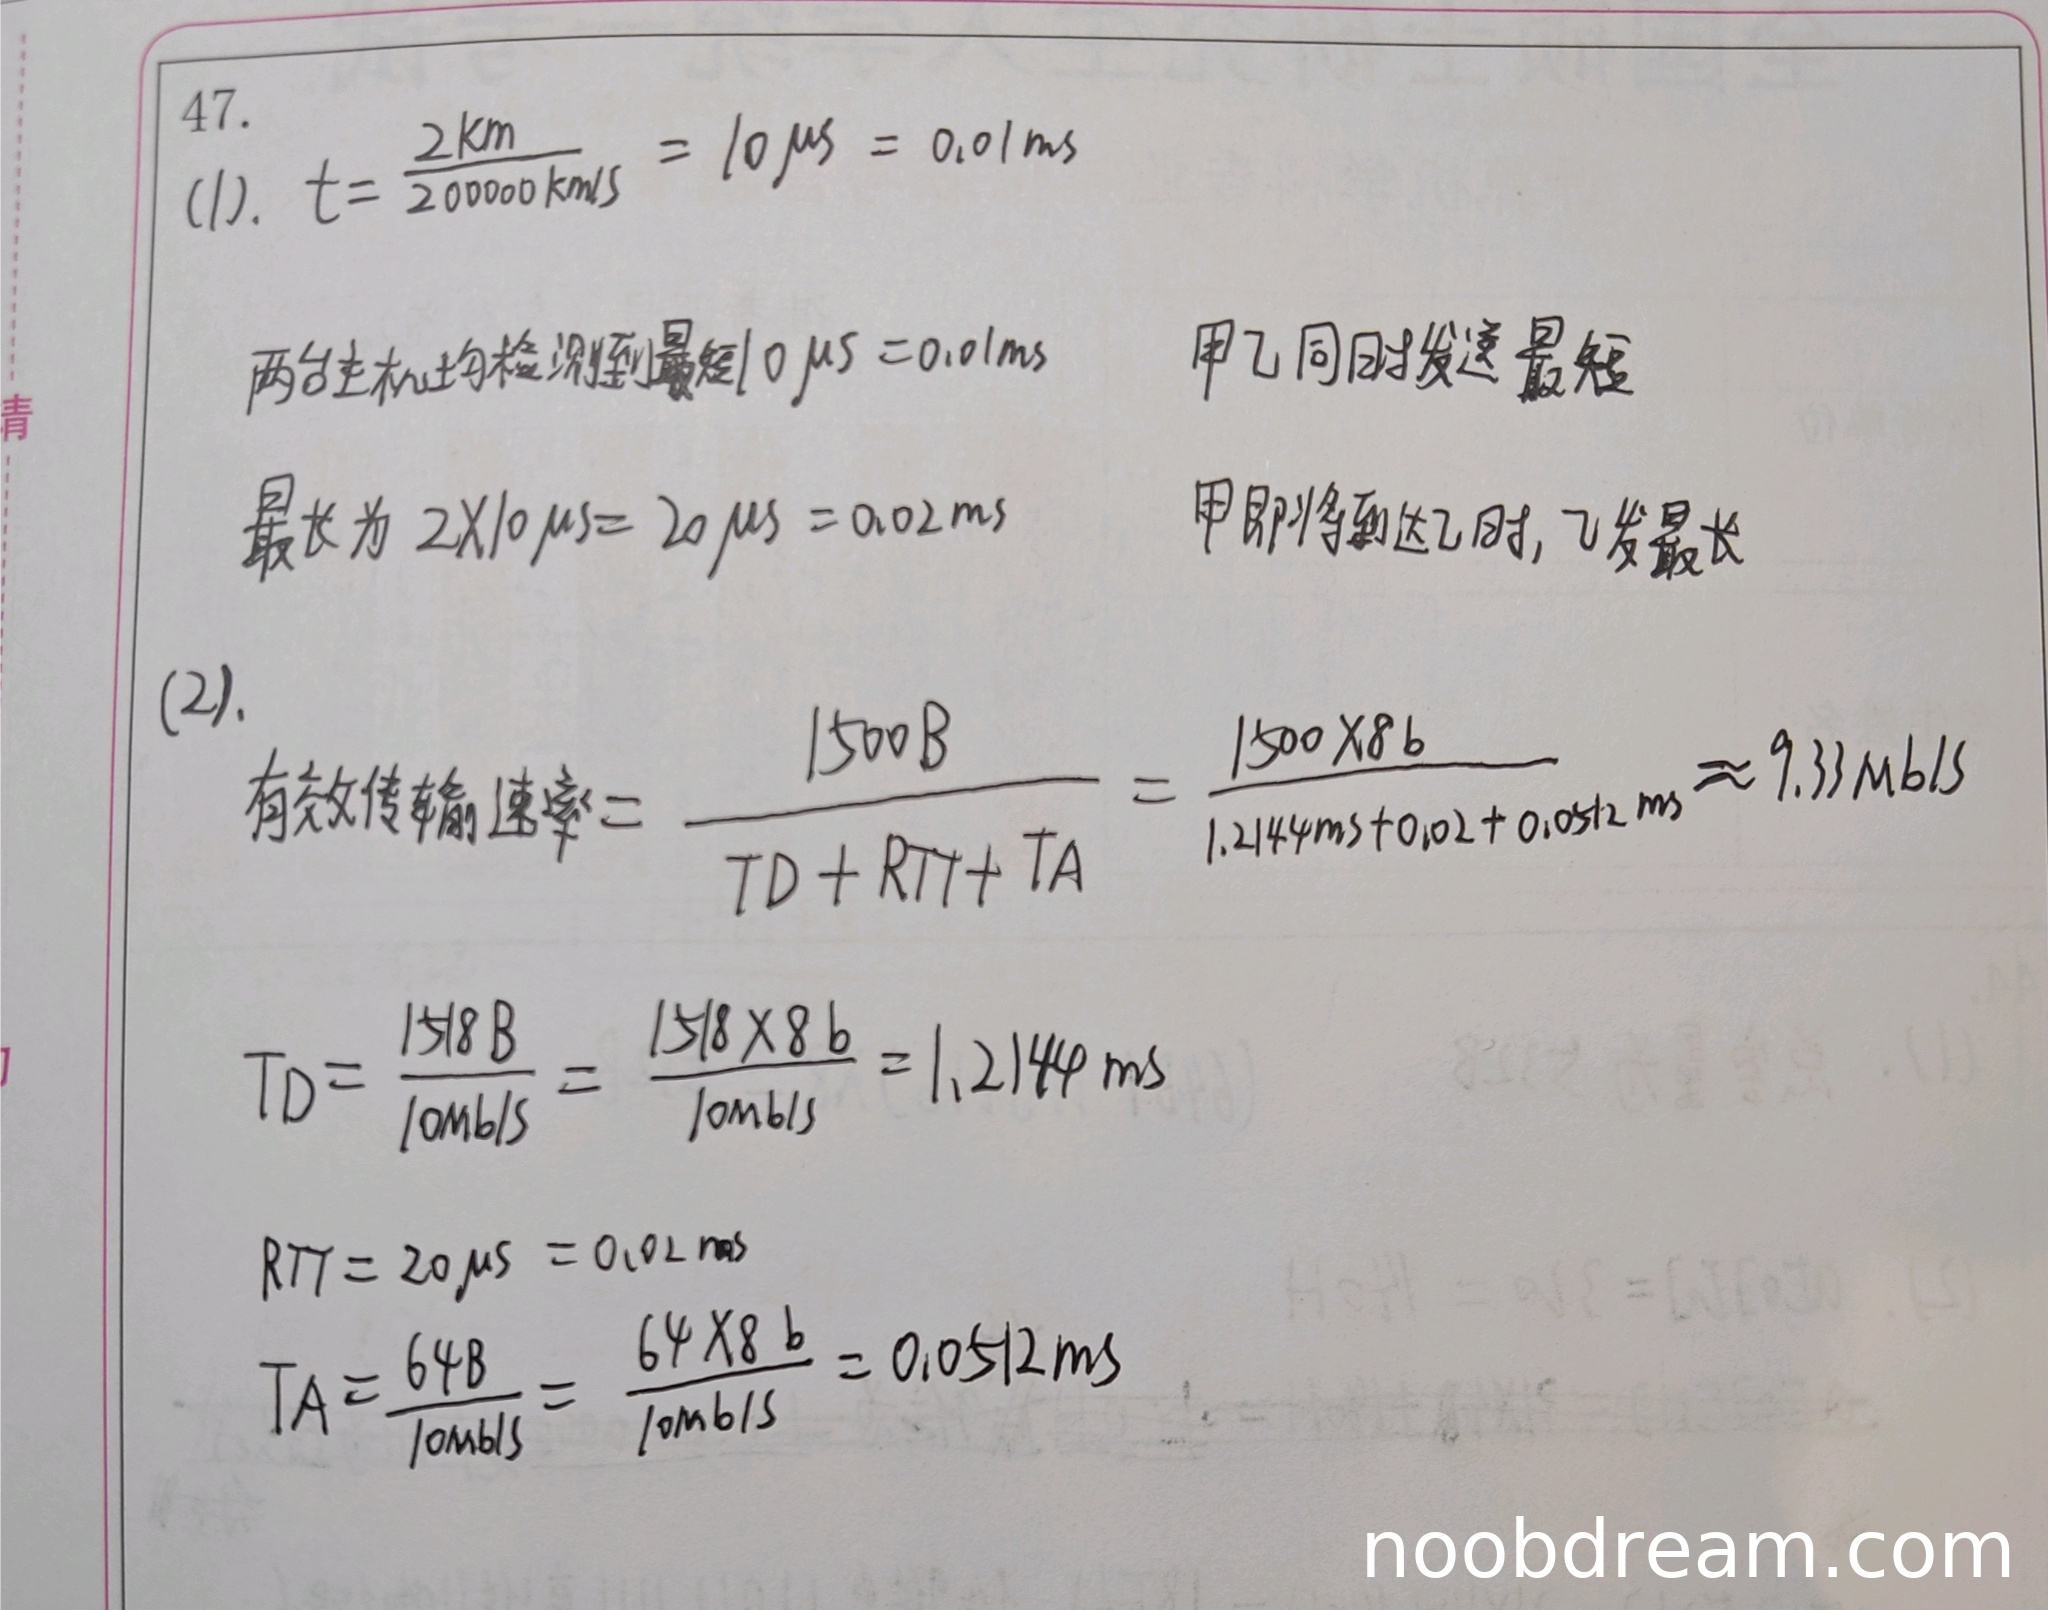 47.
(1). t = 2km / 200000km/s = 10μs = 0.01ms
两台主机均检测到最短10μs = 0.01ms 甲乙同时发送最短
最长为 2×10μs = 20μs = 0.02ms 甲即将到达乙时, 乙发最长
(2).
有效传输速率 = 1500B / TD + RTT + TA = 1500×8b / 1.2144ms + 0.02 + 0.0512ms ≈ 9.33Mb/s
TD = 1518B / 10Mb/s = 1518×8b / 10Mb/s = 1.2144ms
RTT = 20μs = 0.02ms
TA = 64B / 10Mb/s = 64×8b / 10Mb/s = 0.0512ms
请
noobdream.com